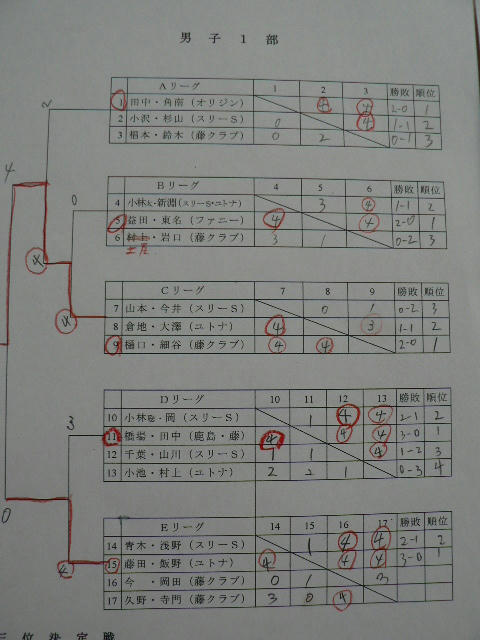 男子1部
Aリーグ 1 2 3 勝敗 順位
1 田中・角南（オリジン） 4 4 2-0 1
2 小沢・杉山（スリーS） 0 4 1-1 2
3 椙本・鈴木（藤クラブ） 0 2 0-1 3
2
4
Bリーグ 4 5 6 勝敗 順位
0
4 小林太・新淵（スリーS・ユトナ） 3 4 1-1 2
5 益田・東名（ファニー） 4 4 2-0 1
6 岩口（藤クラブ） 3 1 0-2 3
土屋
Cリーグ 7 8 9 勝敗 順位
7 山本・今井（スリーS） 0 1 0-2 3
8 倉地・大澤（ユトナ） 4 3 1-1 2
9 樋口・細谷（藤クラブ） 4 4 2-0 1
Dリーグ 10 11 12 13 勝敗 順位
10 小林・岡（スリーS） 1 4 4 2-1 2
3
11 橋場・田中（鹿島・藤） 4 4 4 3-0 1
12 千葉・山川（スリーS） 1 1 4 1-2 3
13 小池・村上（ユトナ） 2 2 1 0-3 4
0
Eリーグ 14 15 16 17 勝敗 順位
14 青木・浅野（スリーS） 1 4 4 2-1 2
15 藤田・飯野（ユトナ） 4 4 4 3-0 1
4
16 今・岡田（藤クラブ） 0 1 3
17 久野・寺門（藤クラブ） 3 0 4
三位決定戦